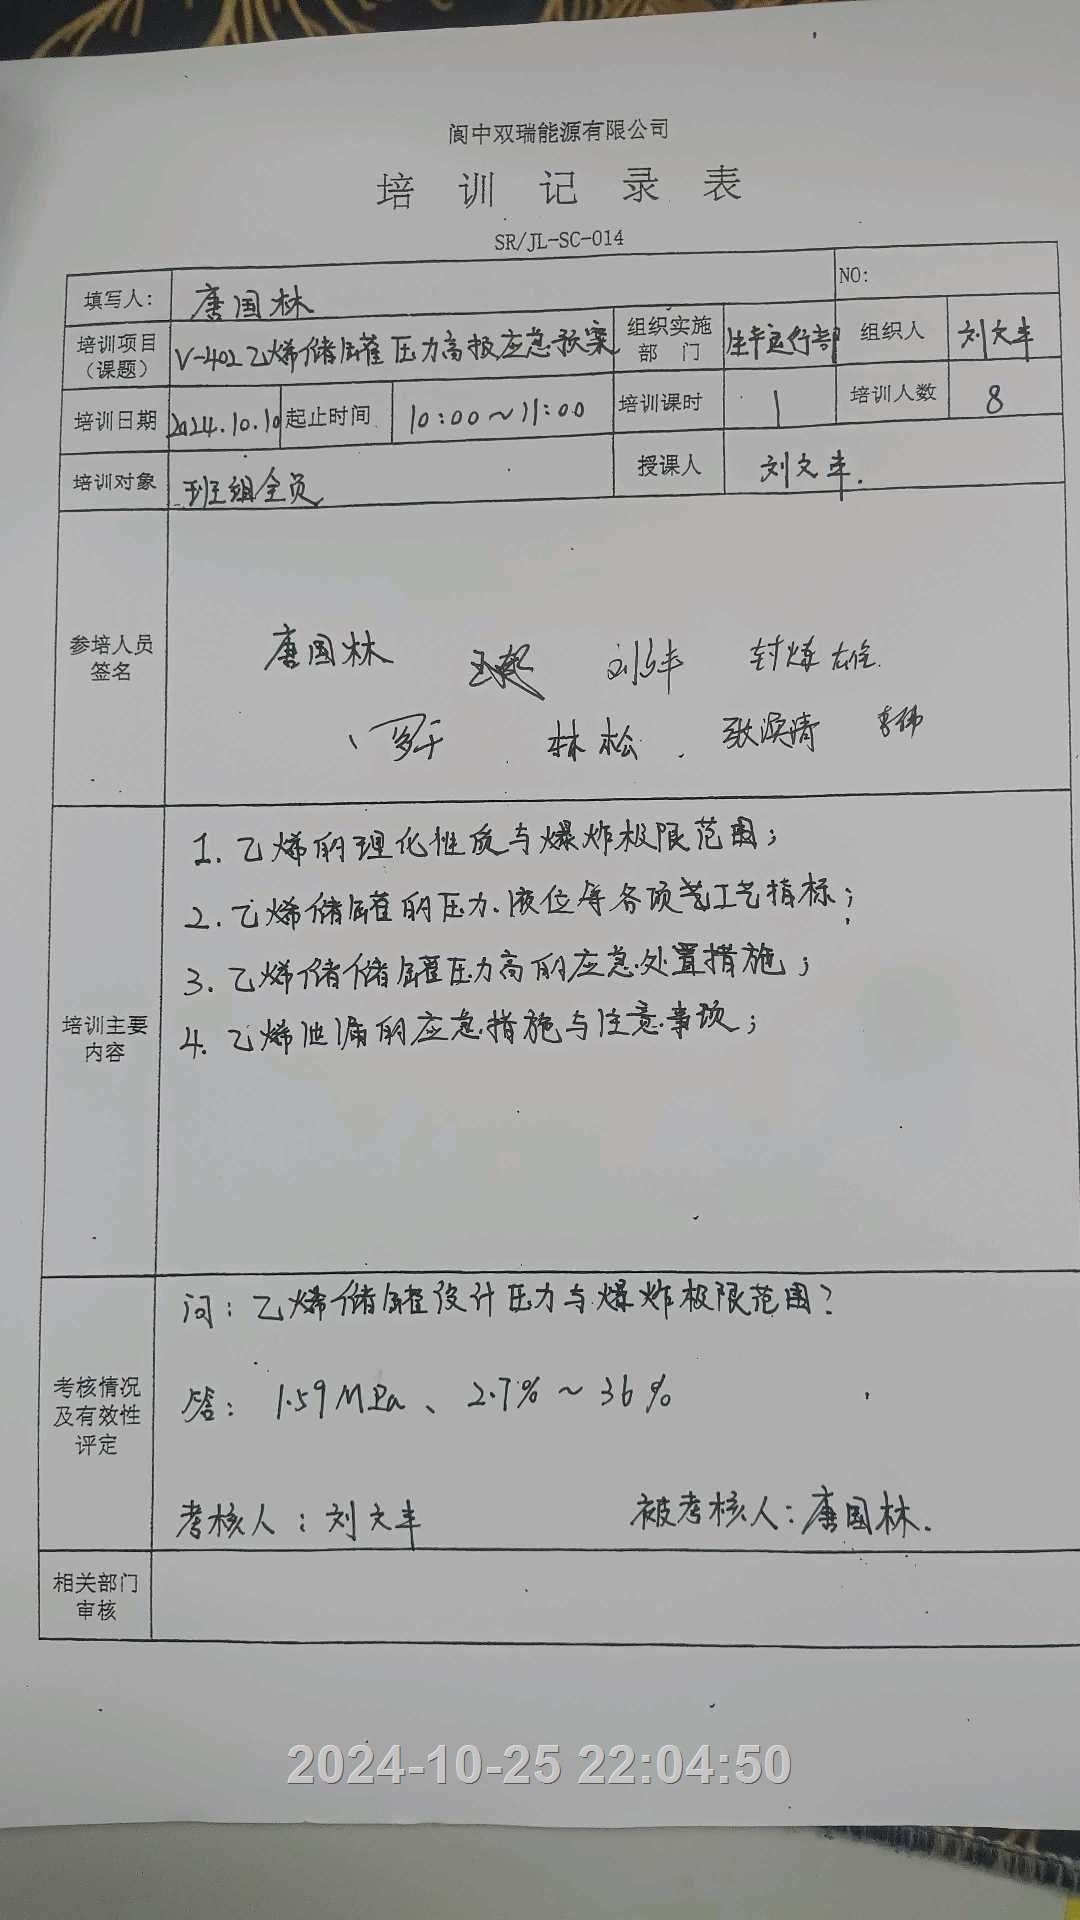 阆中双瑞能源有限公司
培训记录表
SR/JL-SC-014
填写人: 唐国林 NO:
培训项目（课题） V-402乙烯储罐压力高报应急预案 组织实施部门 生产运行部 组织人 刘文丰
培训日期 2024.10.10 起止时间 10:00～11:00 培训课时 1 培训人数 8
培训对象 班组全员 授课人 刘文丰.
参培人员签名
唐国林 刘文丰 封炼雄
罗千 林松 张浜清 李伟
培训主要内容
1. 乙烯的理化性质与爆炸极限范围；
2. 乙烯储罐的压力、液位等各项工艺指标；
3. 乙烯储储罐压力高的应急处置措施；
4. 乙烯泄漏的应急措施与注意事项；
考核情况及有效性评定
问：乙烯储罐设计压力与爆炸极限范围？
答：1.59MPa、2.7%～36%
考核人：刘文丰 被考核人：唐国林.
相关部门审核
2024-10-25 22:04:50